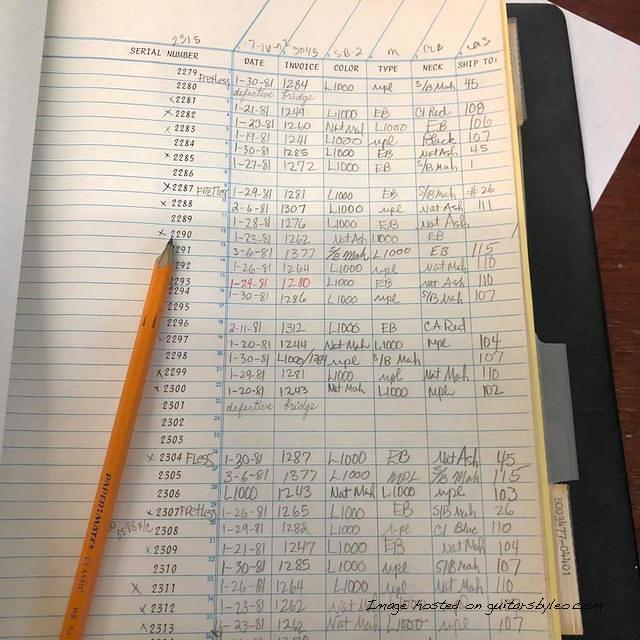 2315 5045 SB-2 m CLB
SERIAL NUMBER DATE INVOICE COLOR TYPE NECK SHIP TO:
2279 Fretless 1-30-81 1284 L1000 mpl S/B Mah 45
2280 defective bridge
x 2281 1-21-81 1249 L1000 EB 108
x 2282 1-23-81 1260 Nat Mah L1000 EB 106
x 2283 1-19-81 1241 L1000 mpl Black 107
2284 1-30-81 1285 L1000 EB Nat Ash 45
x 2285 1-27-81 1272 L1000 EB S/B Mah 1
2286
x 2287 Fretless 1-29-81 1281 L1000 EB S/B Mah #26
x 2288 2-6-81 1307 L1000 mpl Nat Ash 111
2289 1-28-81 1276 L1000 EB Nat Ash
x 2290 1-23-81 1262 Nat Ash L1000 EB
2291 3-6-81 1377 S/B Mah L1000 EB 115
2292 1-26-81 1264 L1000 mpl Nat Mah 110
2293 1-29-81 1280 L1000 EB Nat Ash 110
2294 1-30-81 1286 L1000 mpl S/B Mah 107
2295
2296 2-11-81 1312 L1000 EB CA Red
2297 1-20-81 1244 Nat Mah L1000 mpl 104
2298 1-30-81 L1000/1284 mpl S/B Mah 107
x 2299 1-29-81 1281 L1000 mpl Nat Mah 110
x 2300 1-20-81 1243 Nat Mah L1000 mpl 102
2301 defective bridge
2302
2303
x 2304 FLess 1-30-81 1287 L1000 EB Nat Ash 45
2305 3-6-81 1377 L1000 MPL S/B Mah 115
2306 L1000 1243 Nat Mah L1000 mpl 103
x 2307 Fretless 1-26-81 1265 L1000 EB S/B Mah 26
2308 1-29-81 1282 L1000 mpl Cl Blue 110
x 2309 1-21-81 1247 L1000 EB Nat Mah 104
2310 1-30-81 1285 L1000 mpl S/B Mah 107
x 2311 1-26-81 1264 L1000 mpl Nat Mah 110
x 2312 1-23-81 1262
x 2313 1-23-81 1262 L1000 mpl 107
PAPER:MATE CLASSIC HB
E003477-04401
Image hosted on guitarsbyleo.com